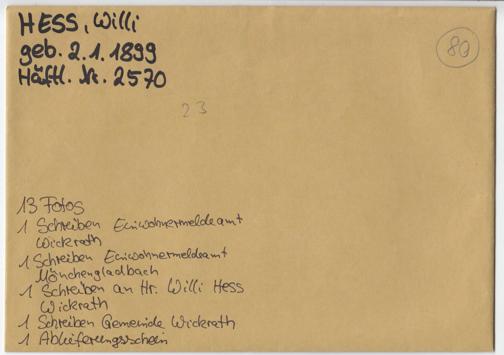 HESS, Willi
geb. 2.1.1899
Häftl. Nr. 2570
80
23
13 Fotos
1 Schreiben Einwohnermeldeamt
Wickrath
1 Schreiben Einwohnermeldeamt
Mönchengladbach
1 Schreiben an Hr. Willi Hess
Wickrath
1 Schreiben Gemeinde Wickrath
1 Ablieferungsschein